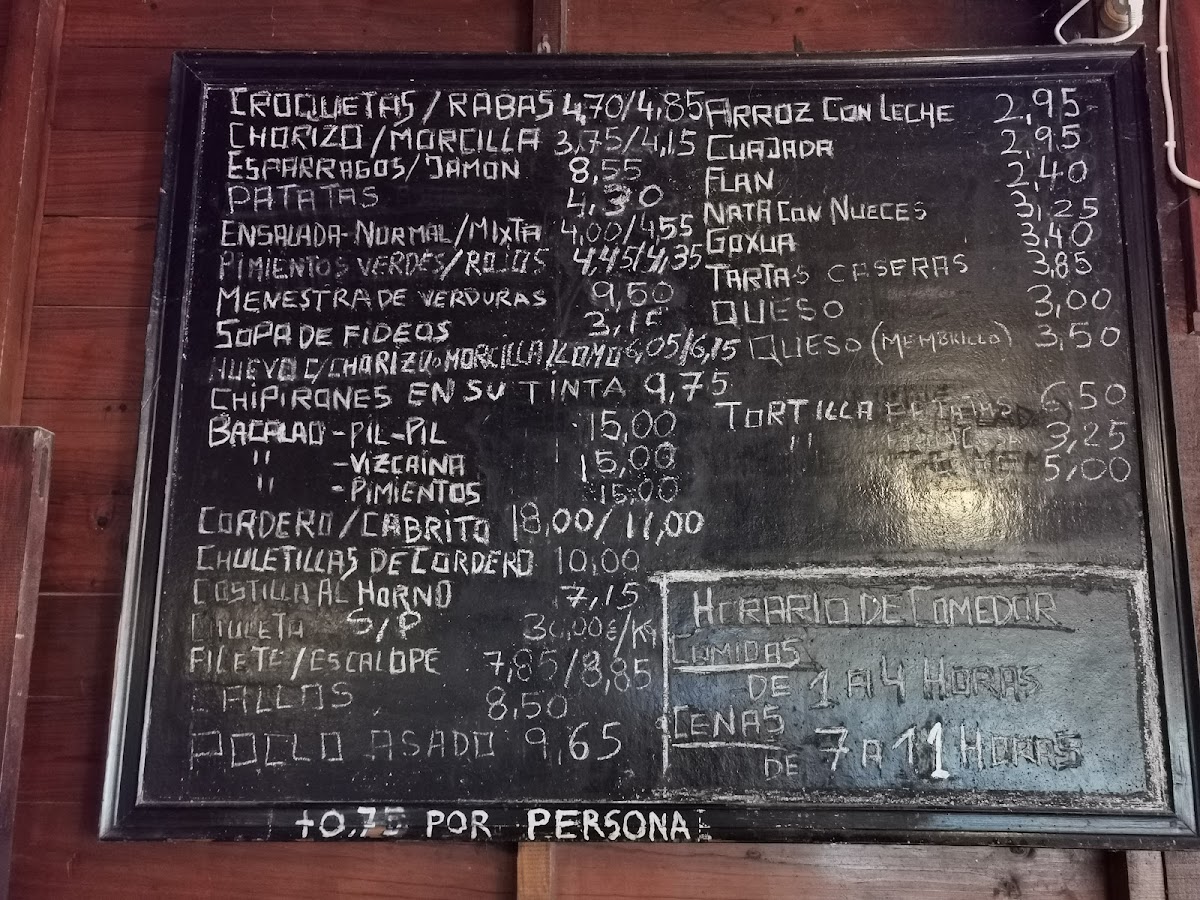 CROQUETAS/RABAS 4,70/4,85
CHORIZO/MORCILLA 3,75/4,15
ESPARRAGOS/JAMON 8,55
PATATAS 4,30
ENSALADA-NORMAL/MIXTA 4,00/4,55
PIMIENTOS VERDES/ROJOS 4,45/4,35
MENESTRA DE VERDURAS 9,50
SOPA DE FIDEOS 3,15
HUEVO C/CHORIZO MORCILLA/LOMO 6,05/6,15
CHIPIRONES EN SU TINTA 9,75
BACALAO -PIL-PIL 15,00
" -VIZCAINA 15,00
" -PIMIENTOS 15,00
CORDERO/CABRITO 18,00/11,00
CHULETILLAS DE CORDERO 10,00
COSTILLA AL HORNO 7,15
CHULETA S/P €/Kg
FILETE/ESCALOPE 7,85/8,85
CALLOS 8,50
POLLO ASADO 9,65
ARROZ CON LECHE 2,95
CUAJADA 2,95
FLAN 2,40
NATA CON NUECES 3,25
GOXUA 3,40
TARTAS CASERAS 3,85
QUESO 3,00
QUESO (MEMBRILLO) 3,50
TORTILLA 6,50
" 3,25
5,00
HORARIO DE COMEDOR
COMIDAS
DE 1 A 4 HORAS
CENAS
DE 7 A 11 HORAS
+0,75 POR PERSONA